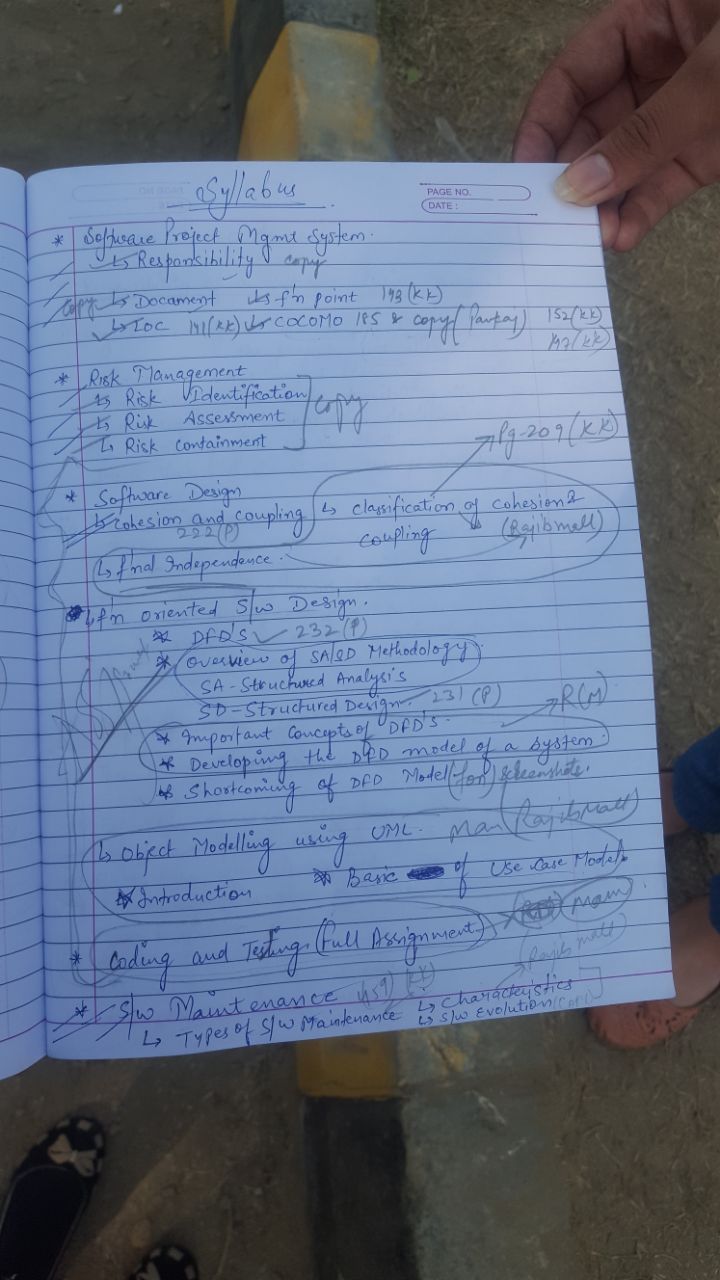 Syllabus
PAGE NO.
DATE :
* Software Project Mgmt System.
↳ Responsibility copy
copy ↳ Document ↳ f'n point 143 (KK)
↳ LOC 141 (KK) ↳ COCOMO 185 & copy (Pankaj) 152 (KK)
147 (KK)
* Risk Management
↳ Risk Identification
↳ Risk Assessment copy
↳ Risk containment
Pg-209 (KK)
* Software Design
↳ Cohesion and coupling ↳ Classification of cohesion &
222 (P) coupling (Rajib mall)
↳ f'nal Independence.
↳ f'n oriented S/w Design.
* DFD'S 232 (P)
* Overview of SA/SD Methodology
SA-Structured Analysis
SD-Structured Design. 231 (P)
* Important Concepts of DFD'S. R(M)
* Developing the DFD model of a system.
* Shortcoming of DFD Model screenshots.
↳ Object Modelling using UML. Mam (Rajib Mall)
* Introduction * Basic of Use Case Model
* Coding and Testing. (Full Assignment) Mam
(Rajib mall)
* S/w Maintenance 459 (KK) ↳ Characteristics
↳ Types of S/w Maintenance ↳ S/w Evolution